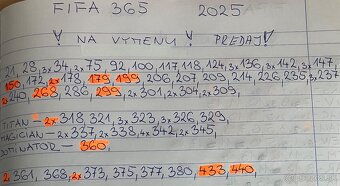 FIFA 365 2025
! NA VÝMENU / PREDAJ !
21, 28, 3x 34, 2x 75, 92, 100, 117, 118, 124, 3x 136, 3x 142, 3x 147,
150, 172, 2x 178, 179, 199, 206, 207, 209, 214, 226, 235, 3x 237
2x 240, 268, 286, 299, 2x 301, 304, 2x 309,
TITAN - 2x 318, 321, 3x 323, 3x 326, 329
MAGICIAN - 2x 337, 2x 338, 4x 342, 2x 345,
DOMINATOR - 360,
2x 361, 368, 2x 373, 375, 377, 380, 433, 440,